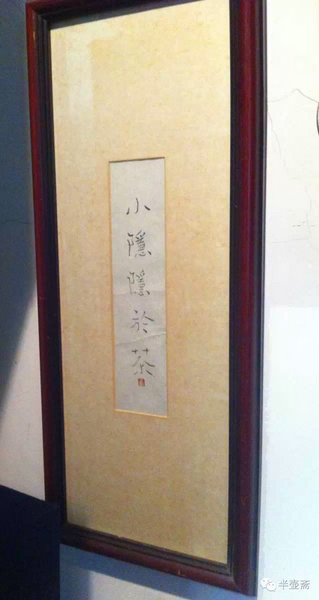 小隱隱於茶
半壺斋